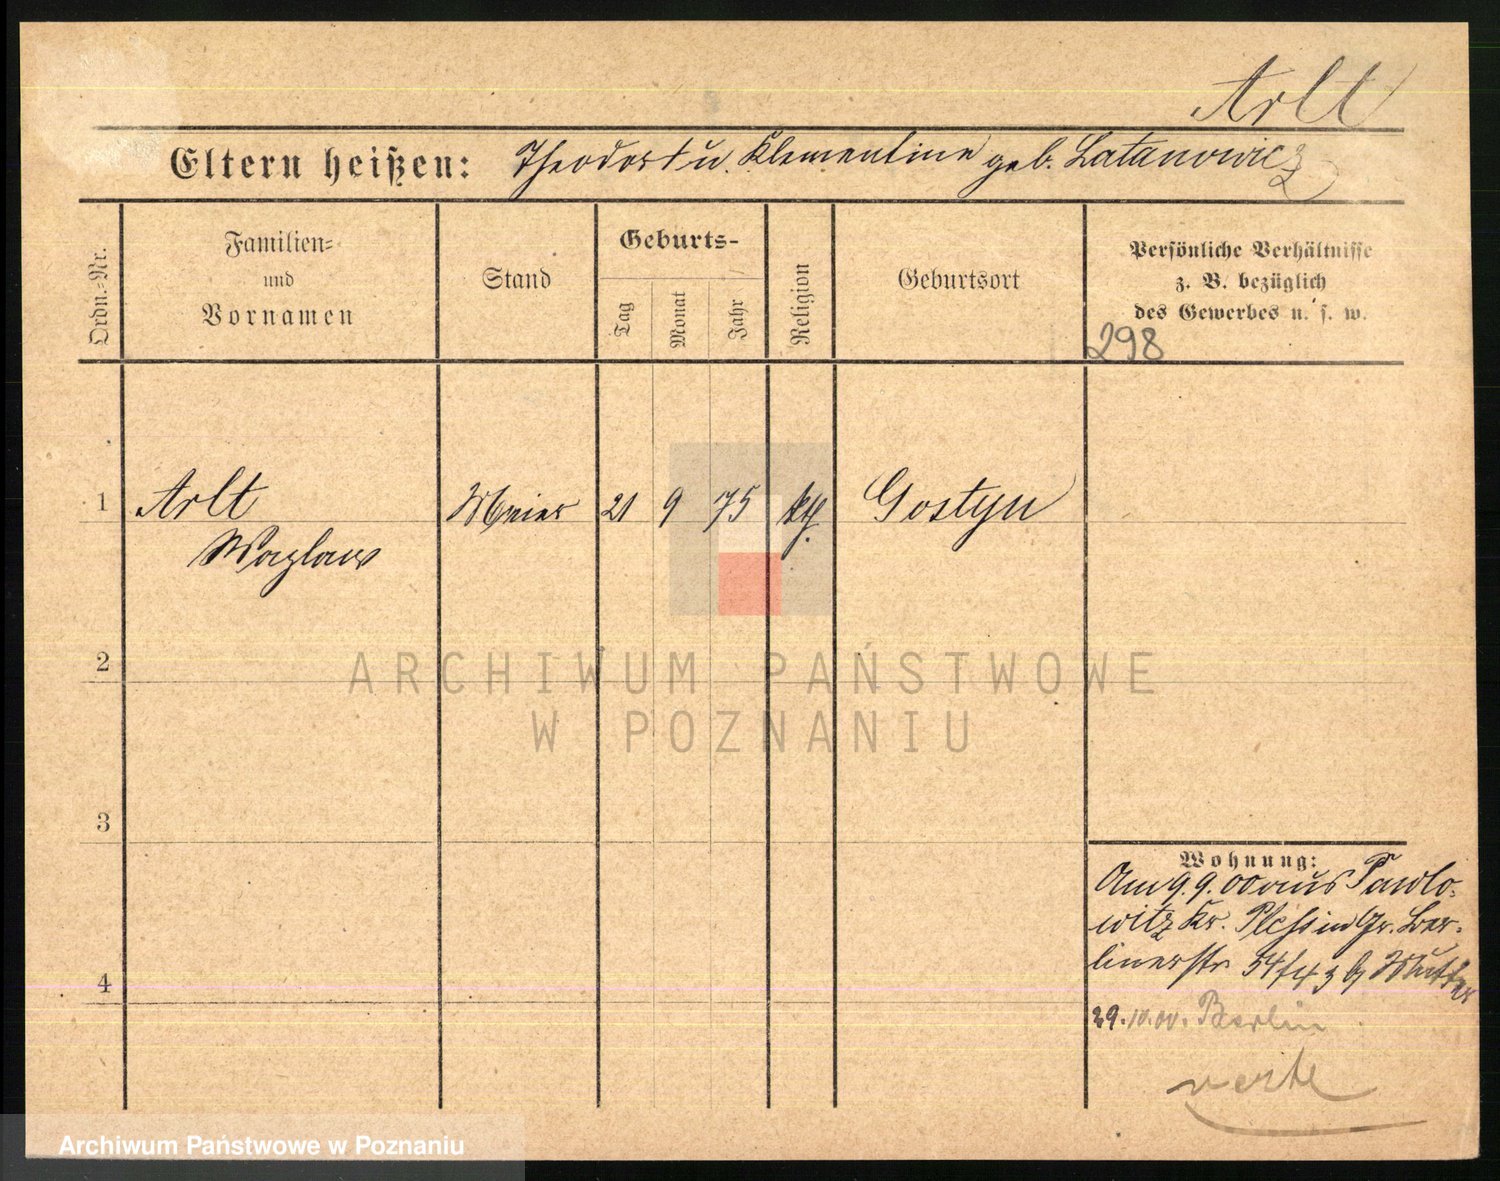 Arlt
Eltern heißen: Theodor u. Klementine geb. Latanowicz
Ordn.-Nr.
Familien-
und
Vornamen
Stand
Geburts-
Tag
Monat
Jahr
Religion
Geburtsort
Persönliche Verhältnisse
z. B. bezüglich
des Gewerbes u. s. w.
298
1 Arlt 21 9 75 kth. Gostyn
Wazlaw
2
ARCHIWUM PAŃSTWOWE
W POZNANIU
3
Wohnung:
Am 9.9.00 aus Pawlo-
witz Kr. Pless in Gr. Ber-
linerstr. 54 Mutter
4
29.10.00. Berlin
verte
Archiwum Państwowe w Poznaniu